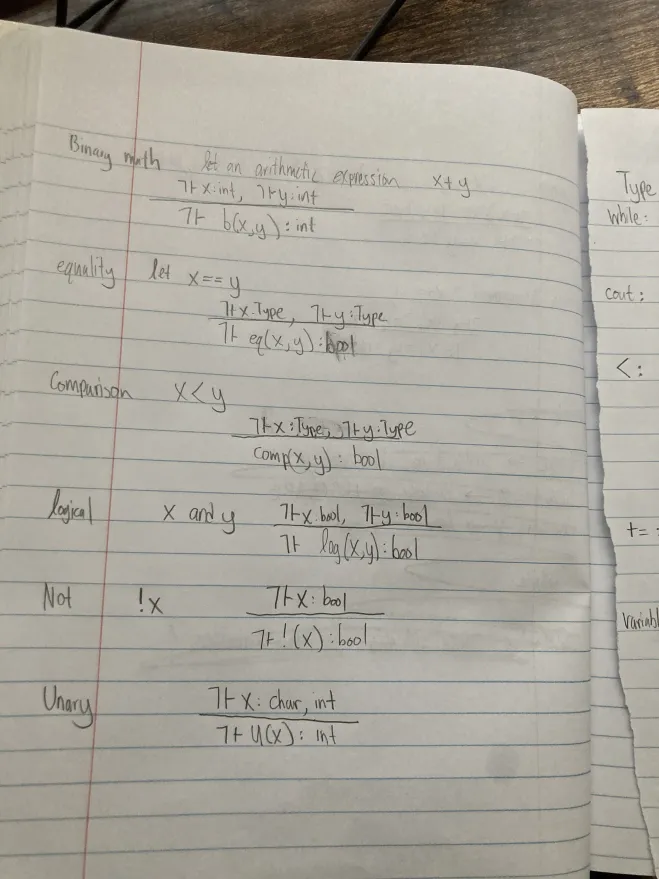 Binary math let an arithmetic expression x+y
⅂⊢ x:int, ⅂⊢y:int
⅂⊢ b(x,y): int
equality let x==y
⅂⊢x:Type, ⅂⊢y:Type
⅂⊢ eq(x,y):bool
Comparison x<y
⅂⊢x:Type, ⅂⊢y:Type
comp(x,y): bool
logical x and y ⅂⊢x:bool, ⅂⊢y:bool
⅂⊢ log(x,y):bool
Not !x ⅂⊢x: bool
⅂⊢!(x):bool
Unary ⅂⊢x: char, int
⅂⊢U(x): int
Type
While:
cout:
<:
+=